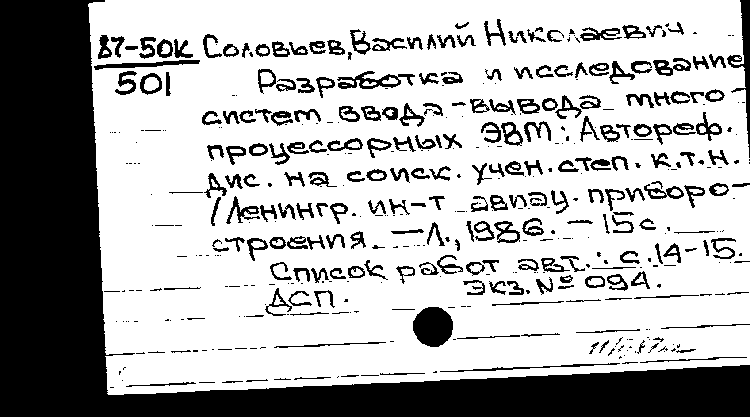 87-50К Соловьев, Василий Николаевич.
501 Разработка и исследование
систем ввода-вывода много-
процессорных ЭВМ: Автореф.
дис. на соиск. учен. степ. к.т.н.
/Ленингр. ин-т авиац. приборо-
строения. — Л., 1986. — 15 с.
Список работ авт.: с. 14-15.
ДСП. Экз. № 094.